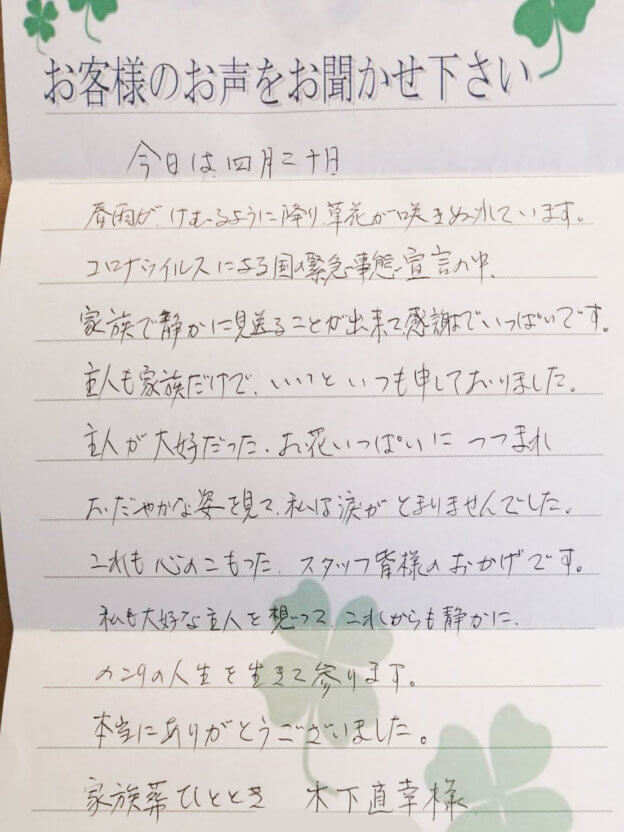 お客様のお声をお聞かせ下さい
今日は四月二十日
春雨が、けむるように降り、草花が咲きみだれています。
コロナウイルスによる国の緊急事態宣言の中、
家族で静かに見送ることが出来て、感謝でいっぱいです。
主人も家族だけで、いいと いつも申しておりました。
主人が大好だった、お花いっぱいに つつまれ
おだやかな姿を見て、私は涙がとまりませんでした。
これも心のこもった、スタッフ皆様のおかげです。
私も大好な主人を想って、これからも静かに、
の人生を生きて参ります。
本当にありがとうございました。
家族葬ひととき 木下直幸様